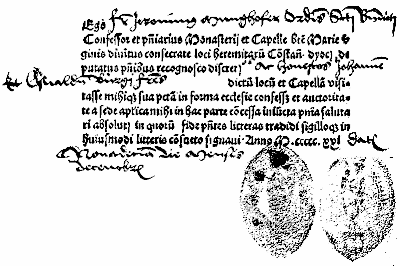 Ego fr Jeronimus Munghofer Ordinis Sti Bndicti
Confessor et pniarius Monasterij et Capelle bte Marie v
ginis divinitus consecrate loci heremitarū Cōstan̄. dyoc̄. de
putatus pn̄ibus recognosco discretū Ac Honestos Johannē
et burgi fres dictā locū et Capellā visi
tasse mihiq; sua pctā in forma ecclesie confessū et auctorita
te a sede aplica mihi in hac parte cōcessa iniūcta pn̄ia saluta
ri absolui in quorū fidē pn̄tes litteras tradidi sigilloq; in
huiusmodi litteris cōsueto signavi. Anno M. ccccc. xxi. Datū
die Mensis
decembris